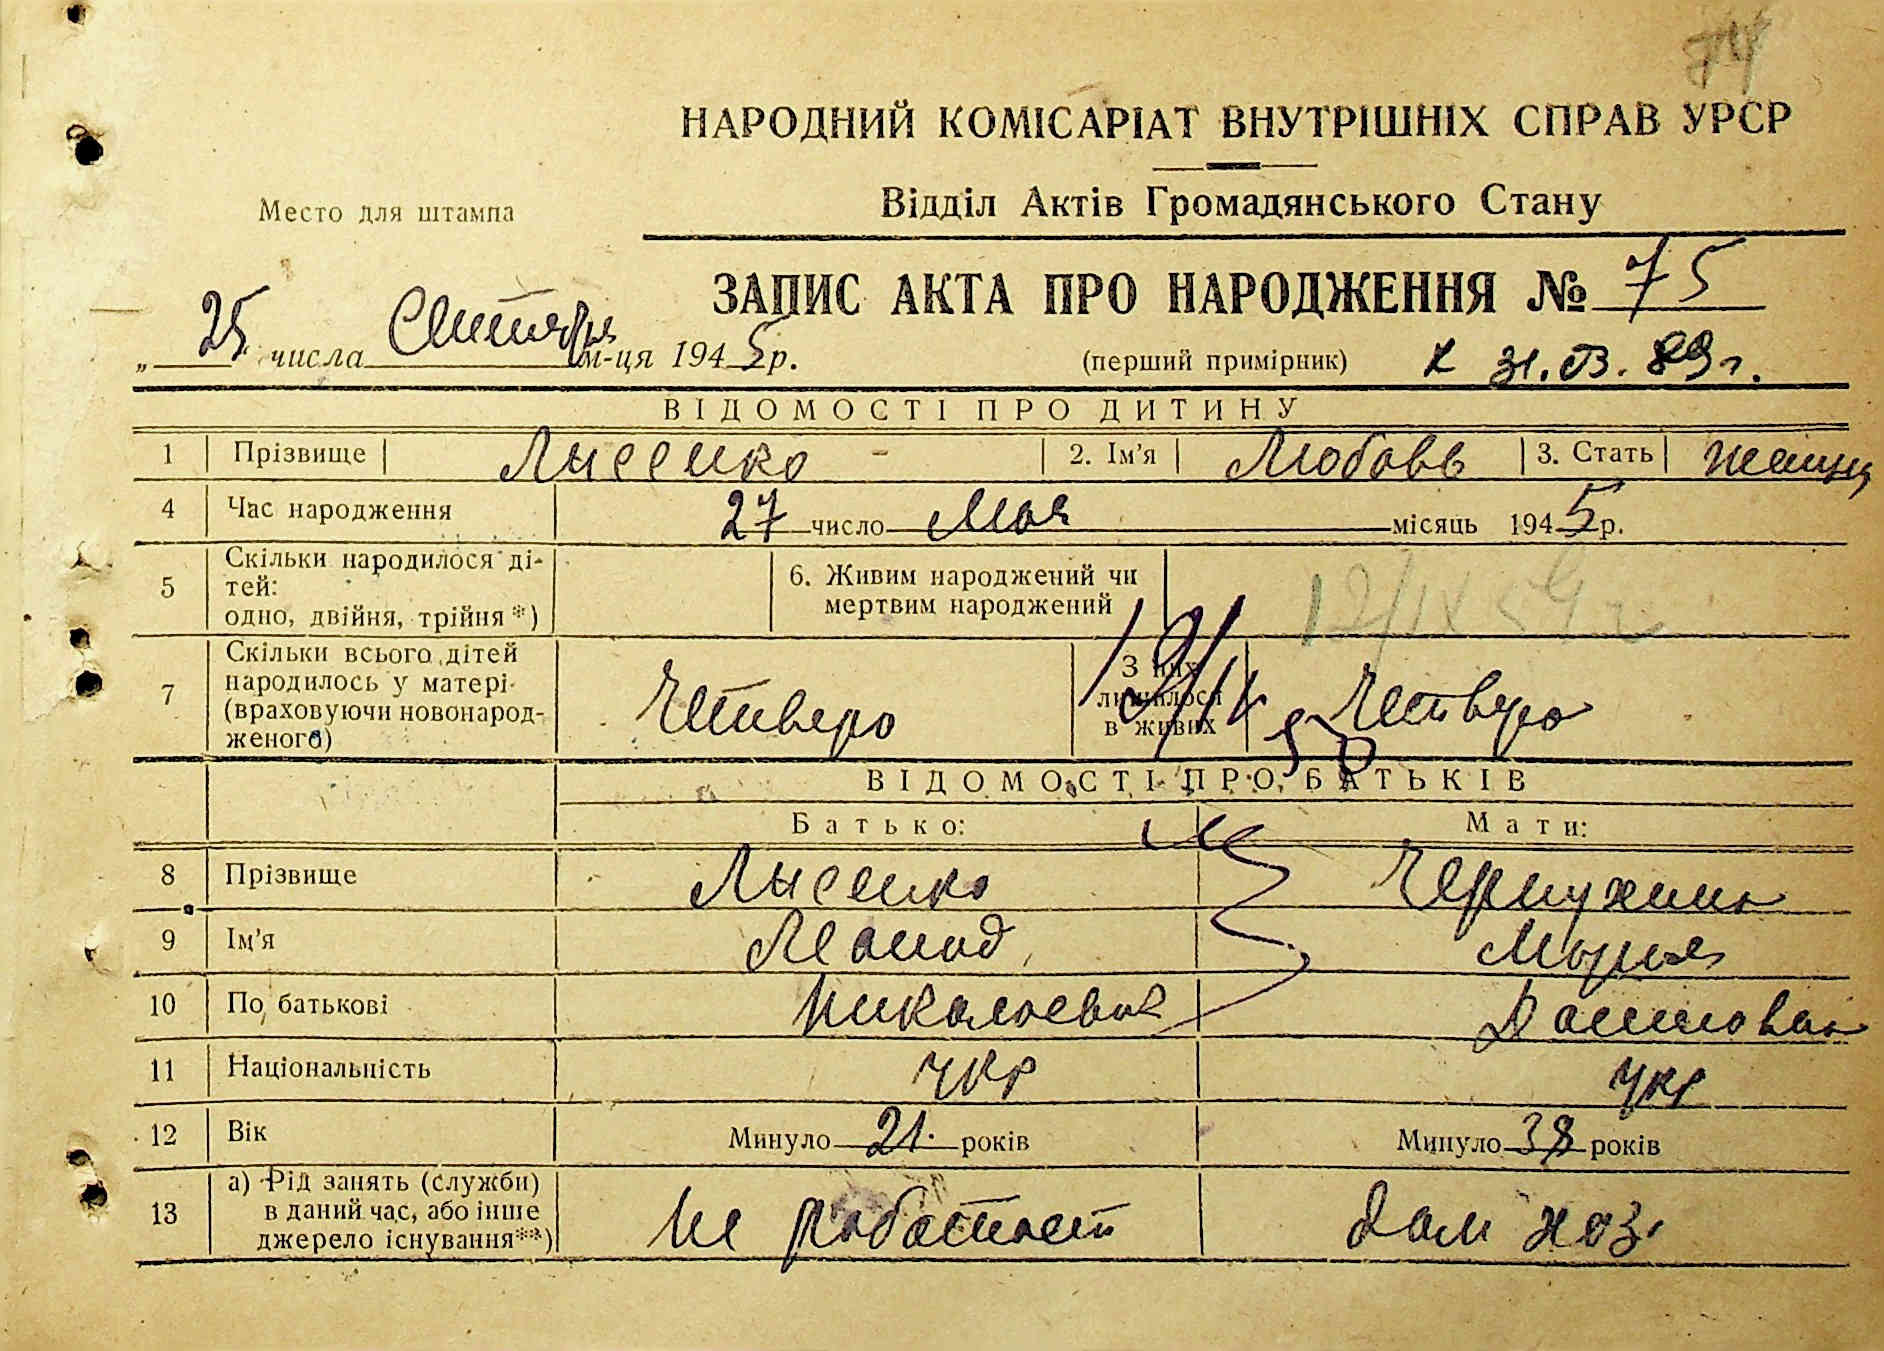 74
НАРОДНИЙ КОМІСАРІАТ ВНУТРІШНІХ СПРАВ УРСР
Место для штампа
Відділ Актів Громадянського Стану
ЗАПИС АКТА ПРО НАРОДЖЕННЯ № 75
„ 25 " числа Сентября м-ця 1945 р.
(перший примірник)
ВІДОМОСТІ ПРО ДИТИНУ
1 Прізвище Лысенко 2. Ім'я Любовь 3. Стать
4 Час народження 27 число Мая місяць 1945 р.
5 Скільки народилося ді-
тей:
одно, двійня, трійня *)
6. Живим народжений чи
мертвим народжений
12/IX 59 г
7 Скільки всього дітей
народилось у матері
(враховуючи новонарод-
женого)
Четверо
З них
лишилося
в живих
Четверо
ВІДОМОСТІ ПРО БАТЬКІВ
Батько: Мати:
8 Прізвище Лысенко Чернухина
9 Ім'я Леонид Мария
10 По батькові Николаевич
11 Національність укр укр
12 Вік Минуло 21 років Минуло 38 років
13 а) Рід занять (служби)
в даний час, або інше
джерело існування**)
Не работает Дом хоз.